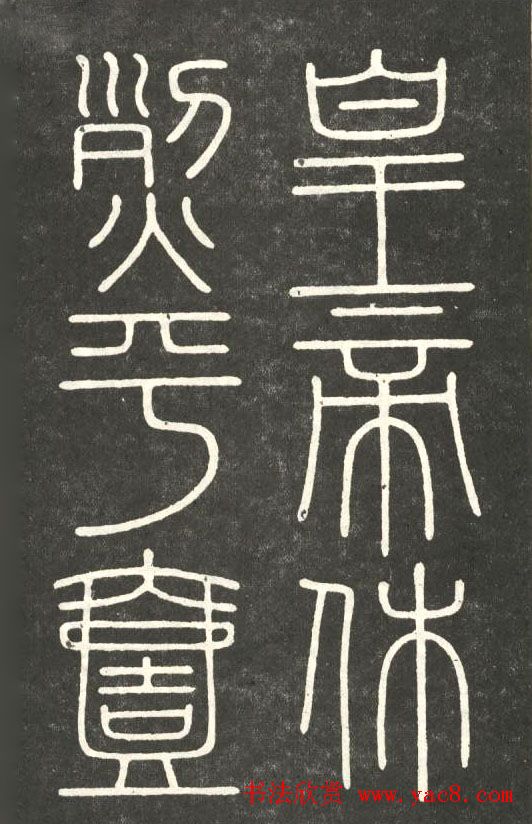 皇帝休
烈平壹
书法欣赏 www.yac8.com